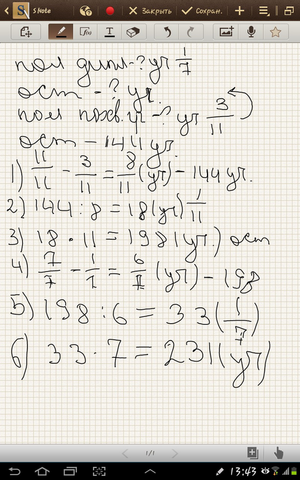 S Note
Закрыть
Сохран.
пол дипл - ? уч 1/7
ост - ? уч.
пол похв. - ? уч 3/11
ост - 144 уч.
1) 11/11 - 3/11 = 8/11 (уч) - 144 уч.
2) 144 : 8 = 18 (уч) 1/11
3) 18 · 11 = 198 (уч) ост
4) 7/7 - 1/7 = 6/7 (уч) - 198
5) 198 : 6 = 33 (1/7)
6) 33 · 7 = 231 (уч)
1/1
13:43